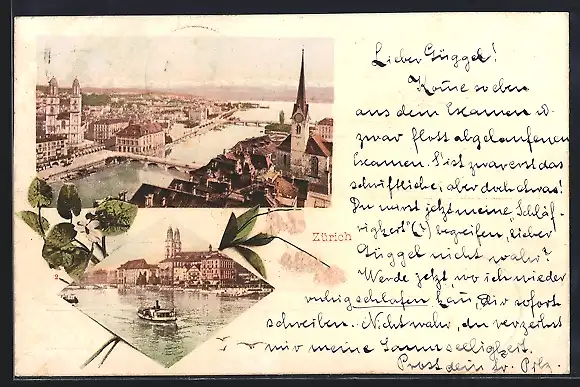 Zürich
Lieber Güggel!
Komme soeben
aus dem Examen u.
zwar flott abgelaufenen
Examen. S'ist zwar erst das
schriftliche; aber doch etwas!
Du wirst jetzt meine "Schläf-
rigkeit" (?) begreifen, lieber
Güggel nicht wahr?
Werde jetzt, wo ich wieder
ruhig schlafen kann, Dir sofort
schreiben. Nicht wahr, du verzeihst
mir meine Saumseeligkeit.
Prost dein Pilz.